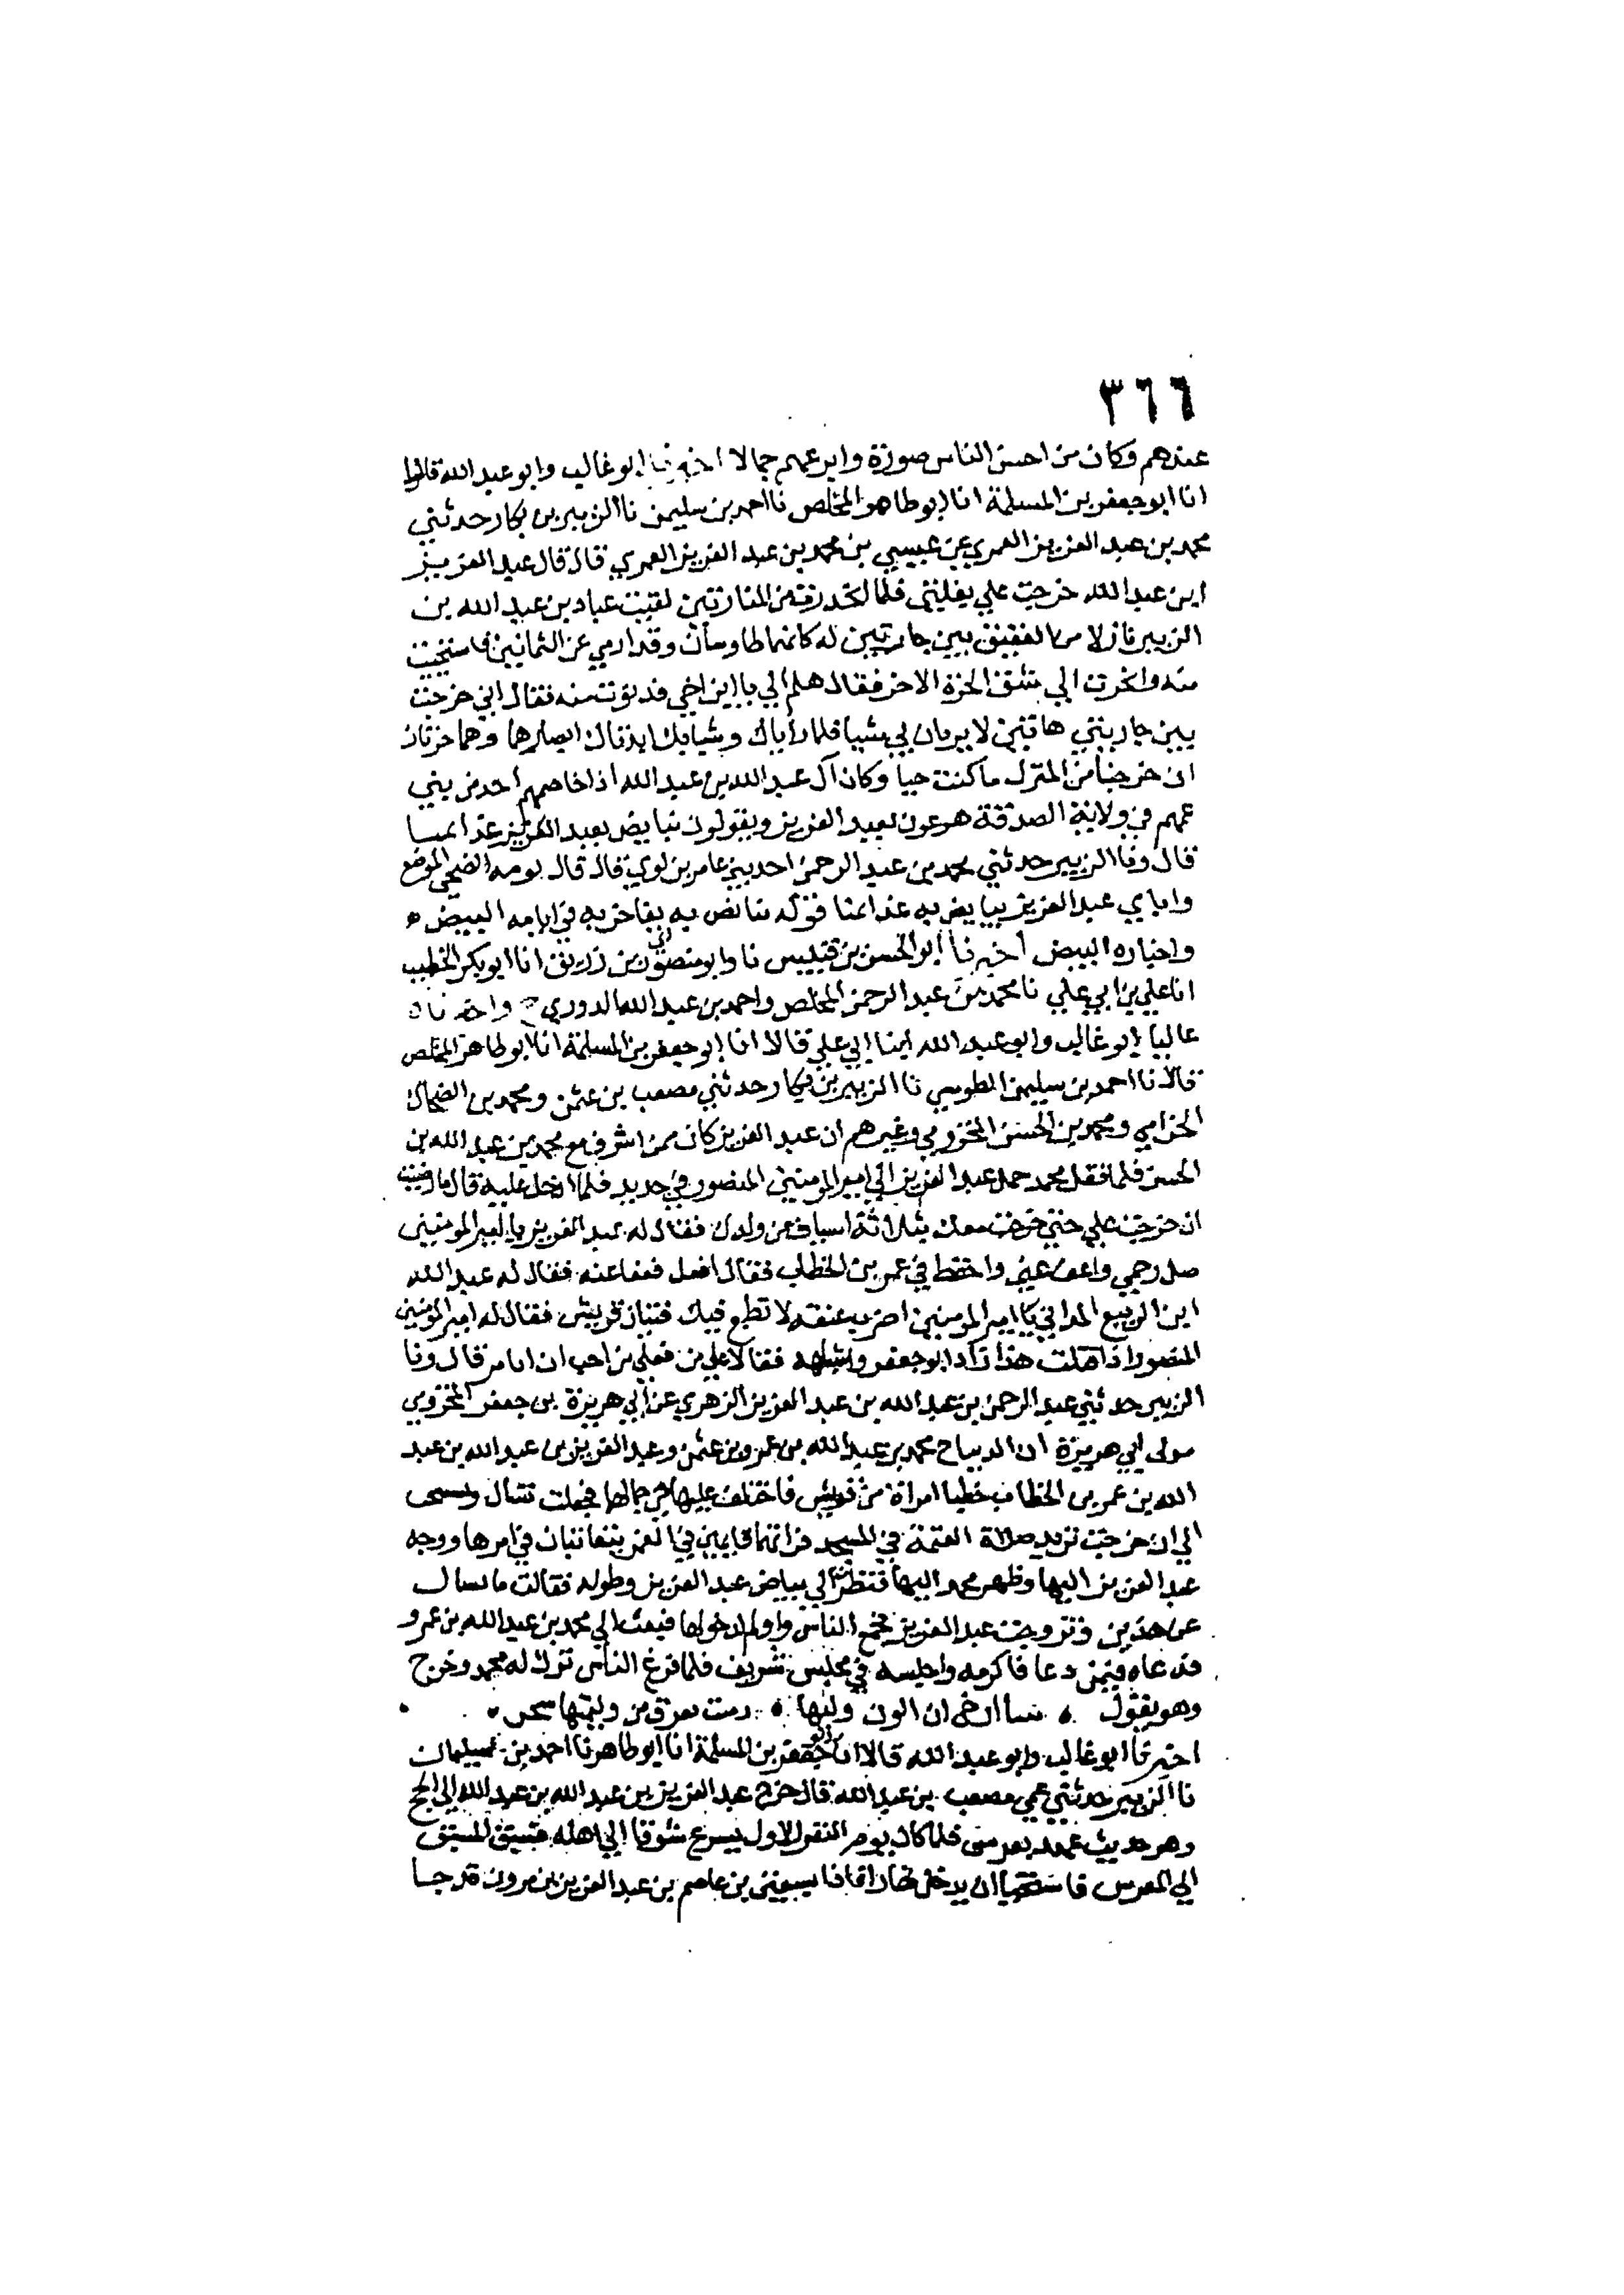 ٣٦٦
عندهم وكان من احسن الناس صورة وابرعهم جمالا اخبرنا ابو غالب وابو عبد الله قالوا
انا ابو جعفر بن المسلمة انا ابو طاهر المخلص نا احمد بن سليمن نا الزبير بن بكار حدثني
محمد بن عبد العزيز العمري عن عيسي بن محمد بن عبد العزيز العمري قال قال عبد العزيز
ابن عبد الله خرجت علي بغلتي فلما انحدرت من المنارتين لقيت عباد بن عبد الله بن
الزبير نازلا من العقيق بين جاريتين له كانهما طاوسان وقد ارمي عن الثمانين فاستحيت
منه وانحرفت الي شق الحرة الاخر فقال هلم الي يا ابن اخي فدنوت منه فقال اني خرجت
بين جاريتي هاتين لا يريان بي شيبا فلما راياك وشبابك ابدتاك ابصارهما وهما حرتان
ان خرجنا من المنزل ما كنت حيا وكان آل عبد الله بن عبد الله اذا خاصمهم احد من بني
عمهم في ولاية الصدقة هو عون لعبد العزيز ويقولون نبايض بعبد العزيز غدا
قال ونا الزبير حدثني محمد بن عبد الرحمن احد بني عامر بن لوي قال قال يومه الضحي الموضع
وابا بي عبد العزيز غدا قوله به يفاخر به في ايامه البيض ه
واخباره البيض اخبرنا ابو الحسن بن قبيس نا وابو منصور بن زريق انا ابو بكر الخطيب
انا علي بن ابي علي نا محمد بن عبد الرحمن المخلص واحمد بن عبد الله الدوري ح واخبرنا ه
عاليا ابو غالب وابو عبد الله ابنا ابي علي قالا انا ابو جعفر بن المسلمة انا ابو طاهر المخلص
قالا نا احمد بن سليمن الطوسي نا الزبير بن بكار حدثني مصعب بن عثمن ومحمد بن الضحاك
الحزامي ومحمد بن الحسن المخزومي وغيرهم ان عبد العزيز كان ممن اشرف مع محمد بن عبد الله بن
الحسن فلما قتل محمد حمل عبد العزيز الي امير المومنين المنصور في حديد فلما ادخل عليه قال ما رضيت
ان خرجت علي حتي خرجت معك بثلاثة اسياف من ولدك فقال له عبد العزيز يا امير المومنين
صل رحمي واعف عني واحفظ في عمر بن الخطاب فقال افعل فعفا عنه فقال له عبد الله
ابن الربيع المداني يا امير المومنين اضرب عنقه لا تطمع فيك فتيان قريش فقال له امير المومنين
المنصور اذا قتلت هذا زاد ابو جعفر واشباهه فقالا علي من فعلي من احب ان اتامر قال ونا
الزبير حدثني عبد الرحمن بن عبد الله بن عبد العزيز الزهري عن ابي هريرة بن جعفر المخزومي
مولي ابي هريرة ان الديباح محمد بن عبد الله بن عمرو بن عثمن وعبد العزيز بن عبد الله بن عبد
الله بن عمر بن الخطاب خطبا امراة من قريش فاختلف عليها في جمالها فجعلت تسال
الي ان خرجت تريد صلاة العتمة في المسجد فراتهما قايمين في القمر يتعاتبان في امرها ووجه
عبد العزيز اليها وظهر محمد اليها فنظرت الي بياض عبد العزيز وطوله فقالت ما يسال
عن هذين وتزوجت عبد العزيز فجمع الناس واولم لدخولها فبعث الي محمد بن عبد الله بن عمرو
فدعاه فيمن دعا فاكرمه واجلسه في مجلس شريف فلما فرغ الناس ترك له محمد وخرج
وهو يقول ه ان اكون وليها ه من وليتها
اخبرنا ابو غالب وابو عبد الله قالا انا ابو جعفر بن المسلمة انا ابو طاهر نا احمد بن سليمان
نا الزبير حدثني عمي مصعب بن عبد الله قال خرج عبد العزيز بن عبد الله بن عبد الله الي الحج
وهو حديث عهد بعرس فلما كان يوم النفر الاول يسرع شوقا الي اهله فسبق
الي المعرس فاستحيا ان يدخل نهارا بن عاصم بن عبد العزيز بن مرون قد جا